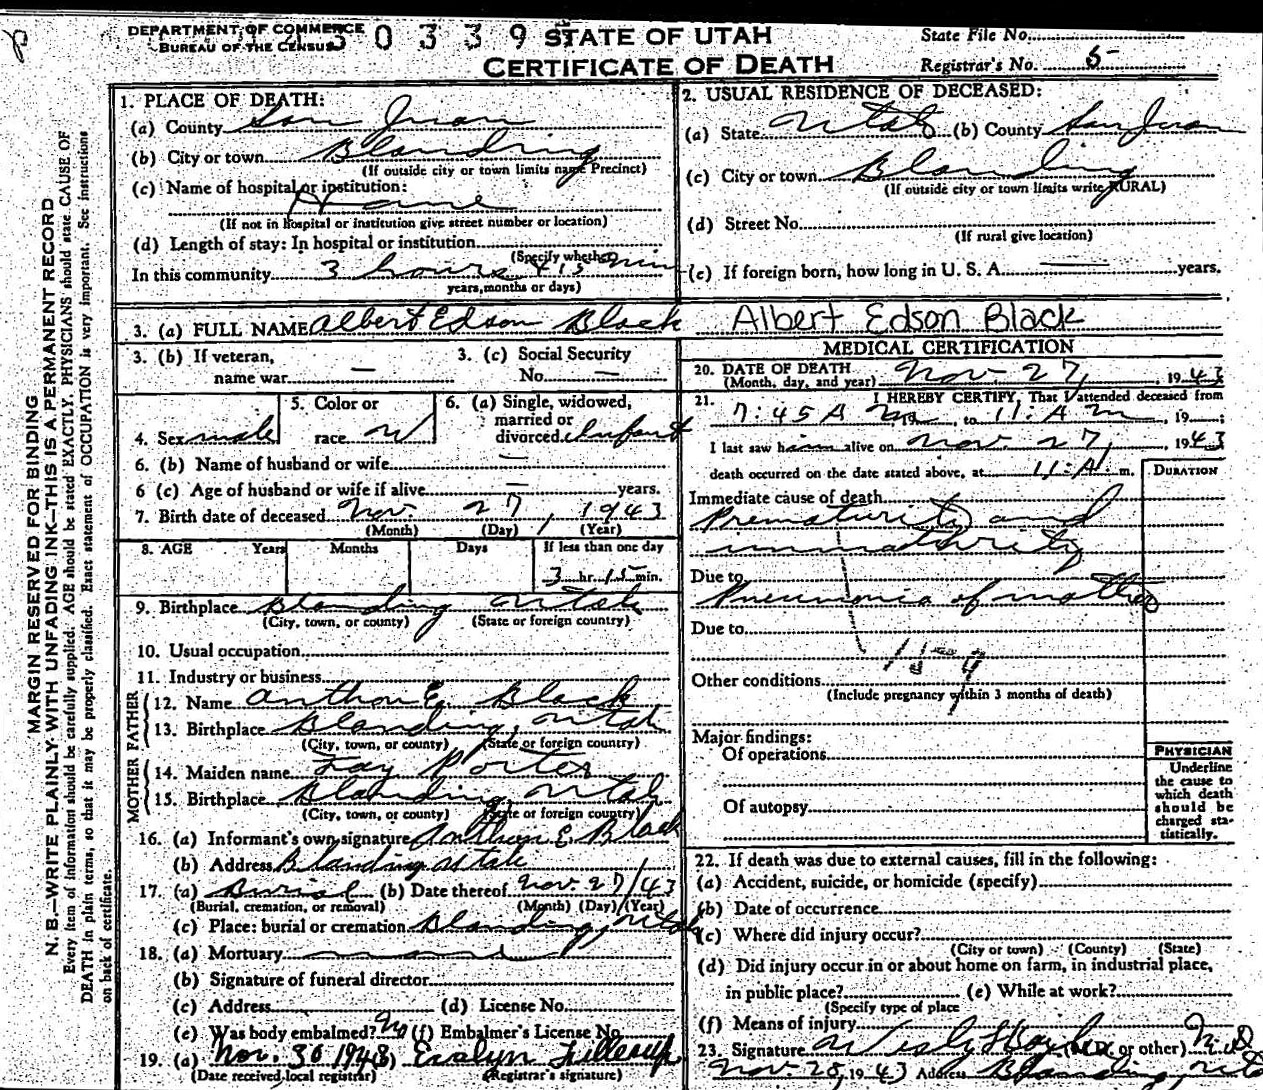 DEPARTMENT OF COMMERCE
BUREAU OF THE CENSUS
STATE OF UTAH
CERTIFICATE OF DEATH
State File No.
Registrar's No. 5
MARGIN RESERVED FOR BINDING
N. B.—WRITE PLAINLY WITH UNFADING INK—THIS IS A PERMANENT RECORD
Every item of information should be carefully supplied. AGE should be stated EXACTLY. PHYSICIANS should state CAUSE OF
DEATH in plain terms, so that it may be properly classified. Exact statement of OCCUPATION is very important. See instructions
on back of certificate.
1. PLACE OF DEATH:
(a) County San Juan
(b) City or town Blanding
(If outside city or town limits name Precinct)
(c) Name of hospital or institution:
(If not in hospital or institution give street number or location)
(d) Length of stay: In hospital or institution
(Specify whether
In this community 3 hours 15 min
years, months or days)
2. USUAL RESIDENCE OF DECEASED:
(a) State Utah (b) County San Juan
(c) City or town Blanding
(If outside city or town limits write RURAL)
(d) Street No.
(If rural give location)
(e) If foreign born, how long in U. S. A. — years.
3. (a) FULL NAME Albert Edson Black Albert Edson Black
3. (b) If veteran,
name war —
3. (c) Social Security
No. —
4. Sex male
5. Color or
race W
6. (a) Single, widowed,
married or
divorced Infant
6. (b) Name of husband or wife —
6 (c) Age of husband or wife if alive — years.
7. Birth date of deceased Nov. 27, 1943
(Month) (Day) (Year)
8. AGE Years Months Days If less than one day
3 hr. 15 min.
9. Birthplace Blanding Utah
(City, town, or county) (State or foreign country)
10. Usual occupation
11. Industry or business
FATHER
12. Name Anthon E. Black
13. Birthplace Blanding, Utah
(City, town, or county) (State or foreign country)
MOTHER
14. Maiden name Fay Porter
15. Birthplace Blanding, Utah
(City, town, or county) (State or foreign country)
16. (a) Informant's own signature Anthon E. Black
(b) Address Blanding Utah
17. (a) Burial (b) Date thereof Nov. 27/43
(Burial, cremation, or removal) (Month) (Day) (Year)
(c) Place: burial or cremation Blanding, Utah
18. (a) Mortuary
(b) Signature of funeral director
(c) Address (d) License No.
(e) Was body embalmed? No (f) Embalmer's License No.
19. (a) Nov. 30 1943 (b) Evalyn
(Date received local registrar) (Registrar's signature)
MEDICAL CERTIFICATION
20. DATE OF DEATH
(Month, day, and year) Nov. 27, 1943
21. I HEREBY CERTIFY, That I attended deceased from
7:45 A m, 19 , to 11: A m, 19 ;
I last saw him alive on Nov. 27, 1943
death occurred on the date stated above, at 11: A. m.
DURATION
Immediate cause of death
Prematurity and
immaturity
Due to
Pneumonia of mother
Due to
159
Other conditions
(Include pregnancy within 3 months of death)
Major findings:
Of operations
Of autopsy
PHYSICIAN
Underline
the cause to
which death
should be
charged sta-
tistically.
22. If death was due to external causes, fill in the following:
(a) Accident, suicide, or homicide (specify)
(b) Date of occurrence
(c) Where did injury occur?
(City or town) (County) (State)
(d) Did injury occur in or about home on farm, in industrial place,
in public place? (e) While at work?
(Specify type of place
(f) Means of injury
23. Signature (M.D. or other) M.D.
Nov. 28, 1943 Address Blanding, Utah